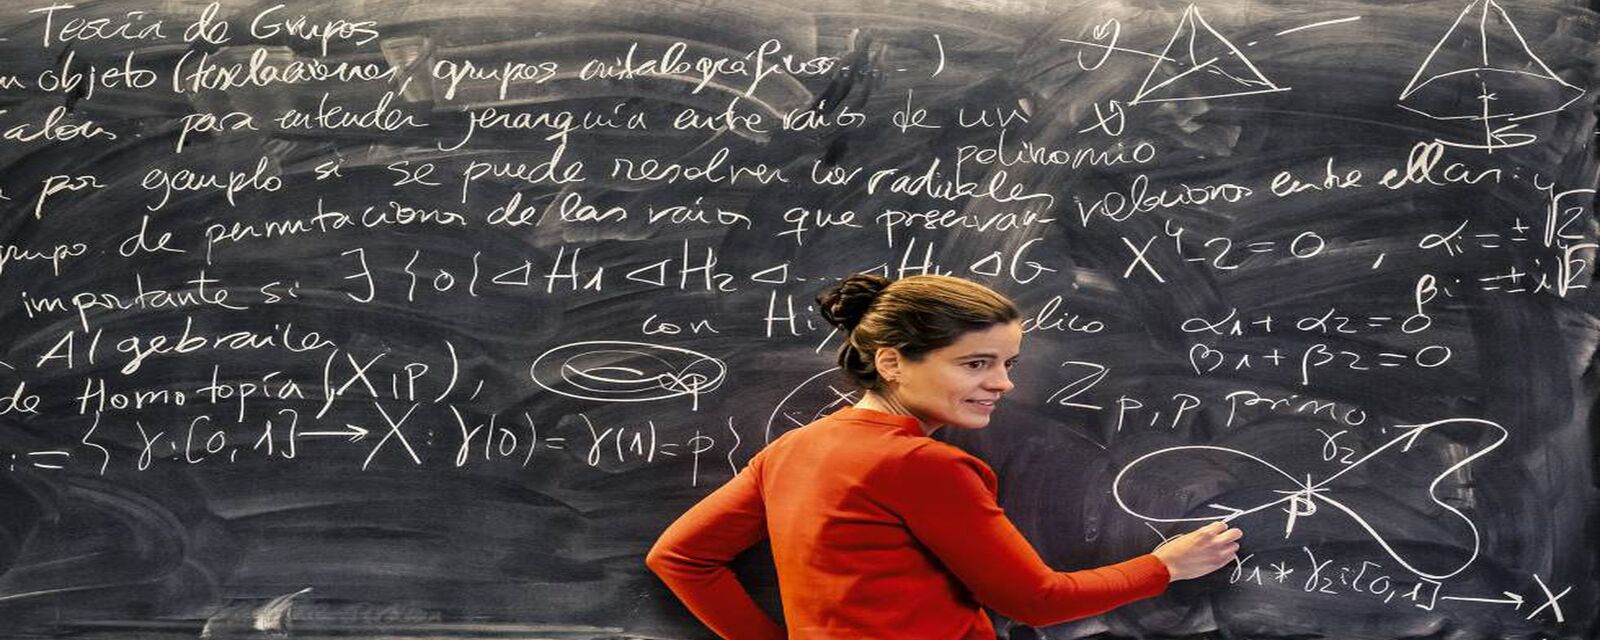 Teoría de Grupos
objeto (teselaciones, grupos cristalográficos .....)
para entender jerarquía entre raíces de un polinomio
por ejemplo si se puede resolver por radicales
grupo de permutaciones de las raíces que preservan relaciones entre ellas:
X⁴-2=0, αi = ±⁴√2
βi = ±i⁴√2
importante si ∃ {0} ⊲ H1 ⊲ H2 ⊲ .... ⊲ G
con Hi
α1 + α2 = 0
β1 + β2 = 0
Algebraica
Zp, p primo
de Homotopía (X,p),
xp
:= { γ:[0,1]→X: γ(0)=γ(1)=p}
γ2
p
γ1 * γ2:[0,1]→X